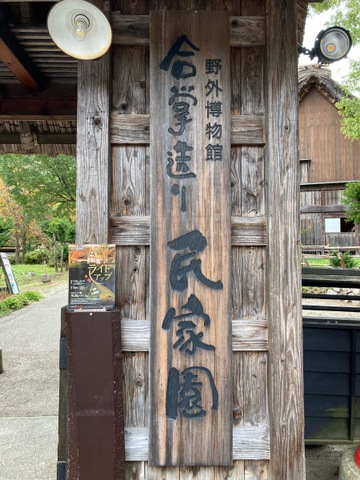 野外博物館
合掌造り民家園
ライト
アップ